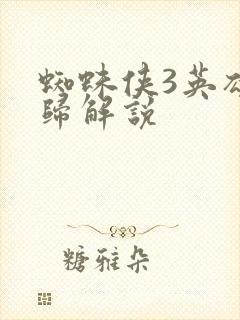 蜘蛛侠3英
歸解説
糖雅朵